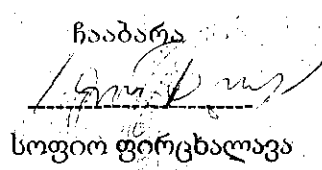 ჩააბარა
სოფიო ფირცხალავა